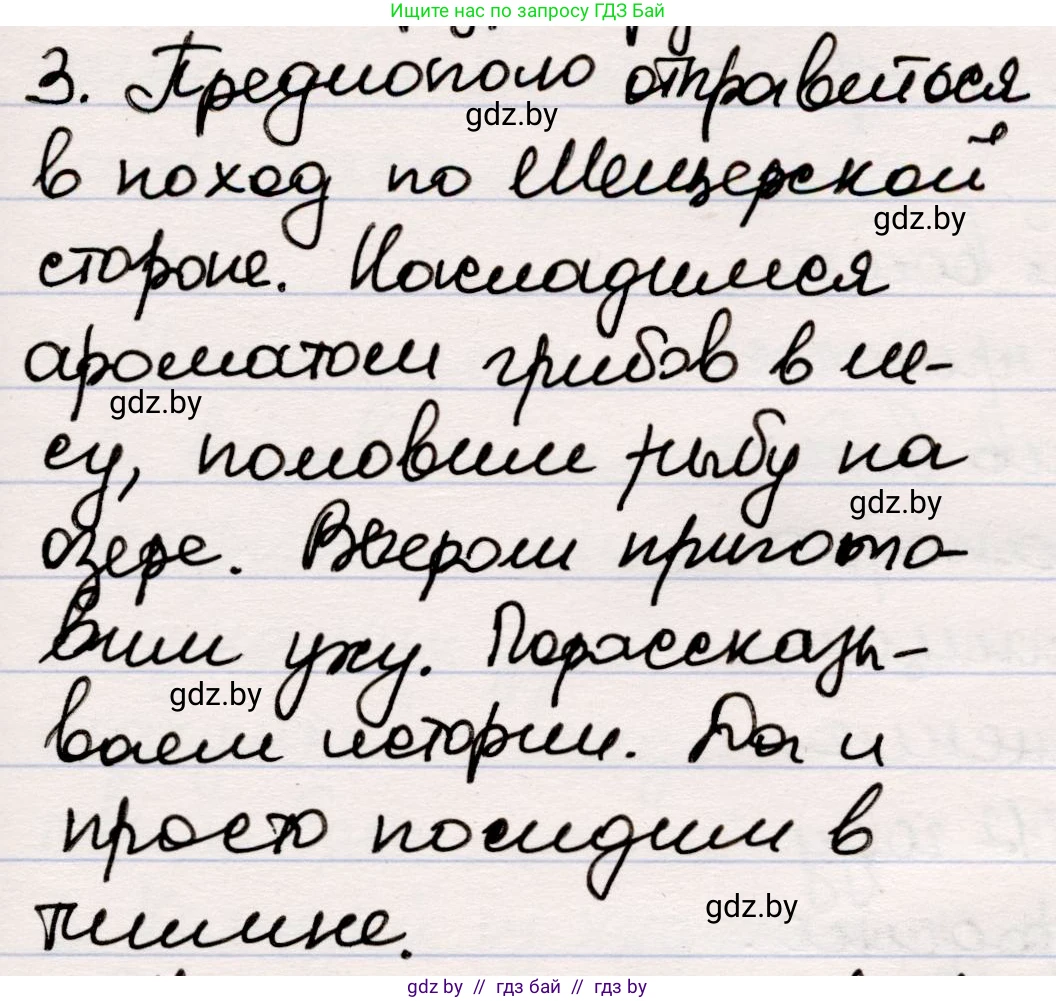 Ищите нас по запросу ГДЗ Бай
3. Предлополо отправиться
gdz.by
в поход по Мещерской
gdz.by
стороне. Насладимся
ароматом грибов в ле-
gdz.by
су, половим рыбу на
gdz.by
озере. Вчером пригото-
вим уху. Порассказы-
gdz.by
ваем истории. Да и
просто посидим в
gdz.by
тишине.
gdz.by // гдз бай // gdz.by